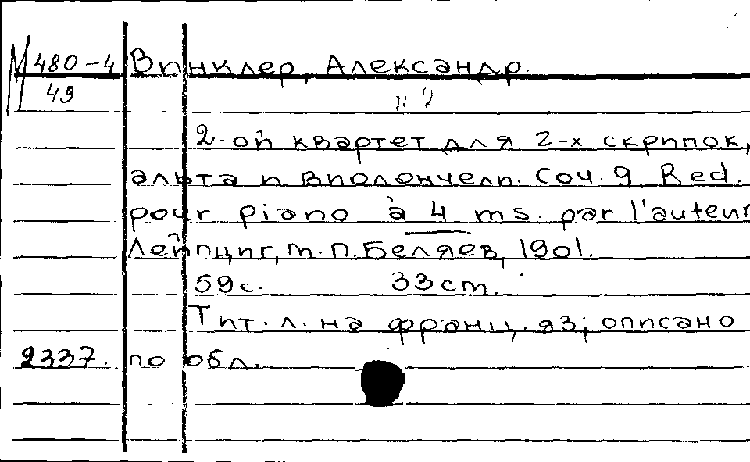 М 480-4 Винклер, Александр.
49
2-ой квартет для 2-х скрипок,
альта и виолончели. Соч. 9 Red.
pour piano à 4 ms. par l'auteur
Лейпциг, М.П. Беляев, 1901.
59 с. 33 cm.
Тит. л. на франц. яз; описано
2337. по обл.